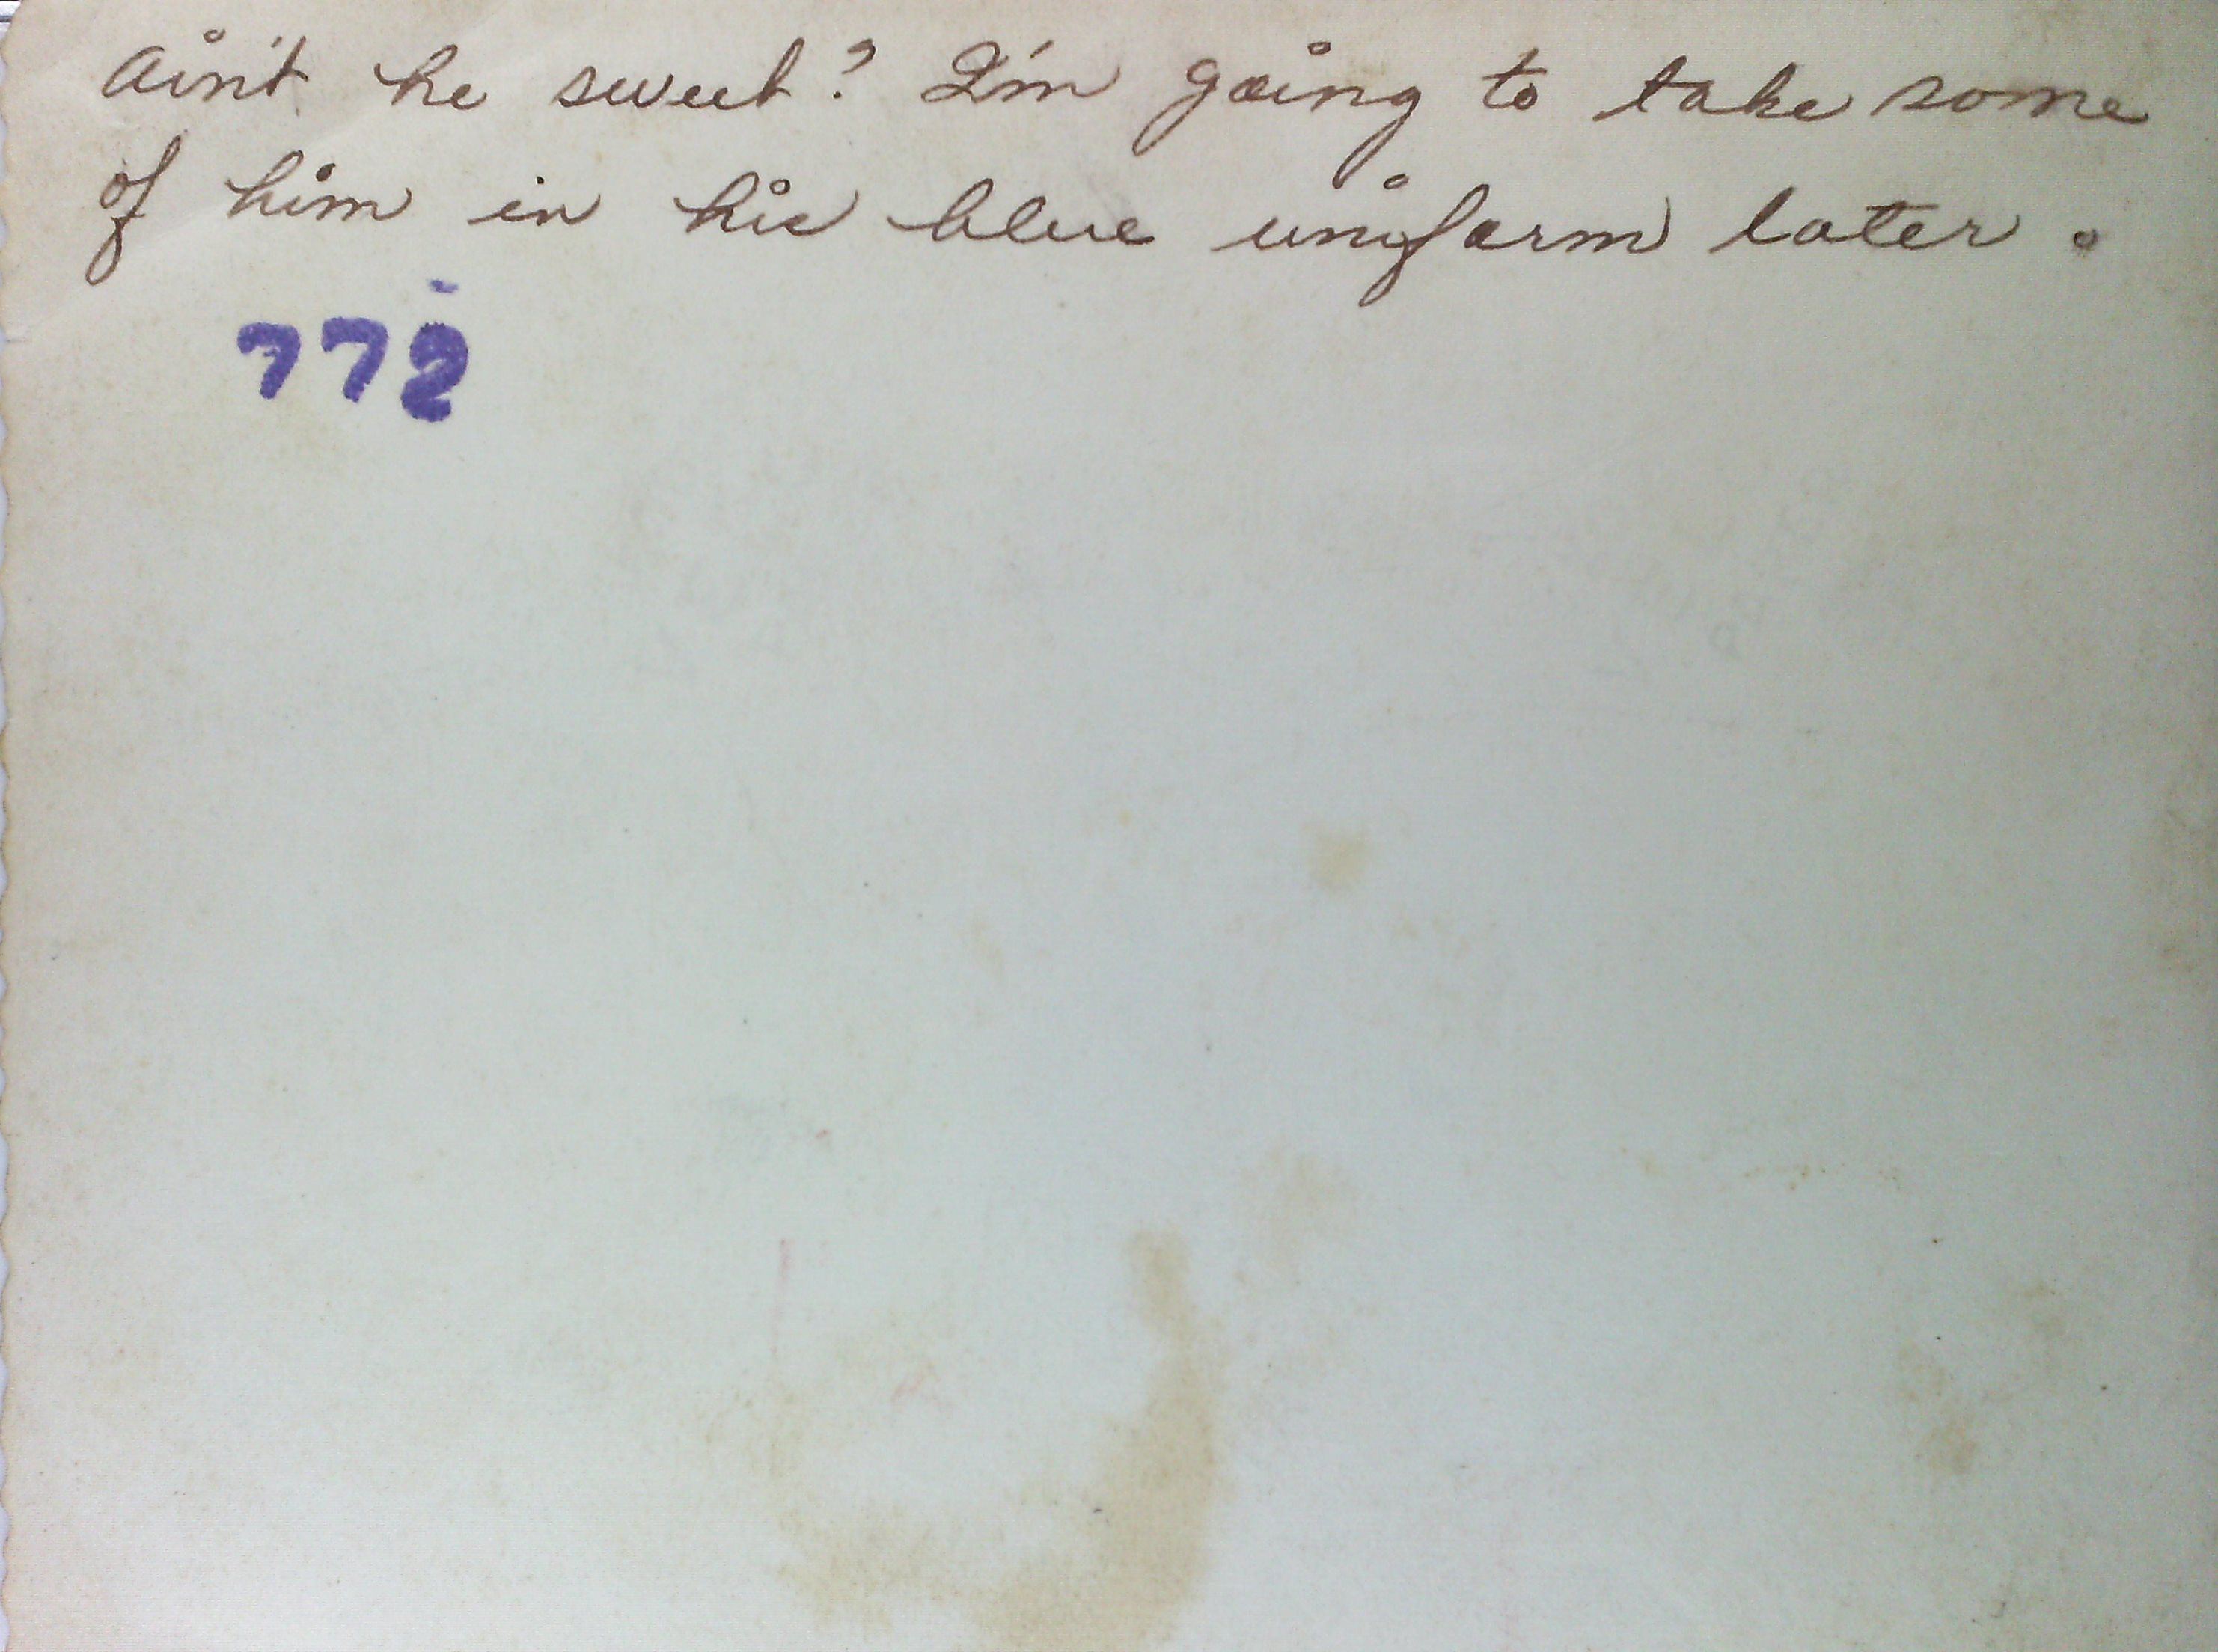 Ain't he sweet? I'm going to take some
of him in his blue uniform later.
772